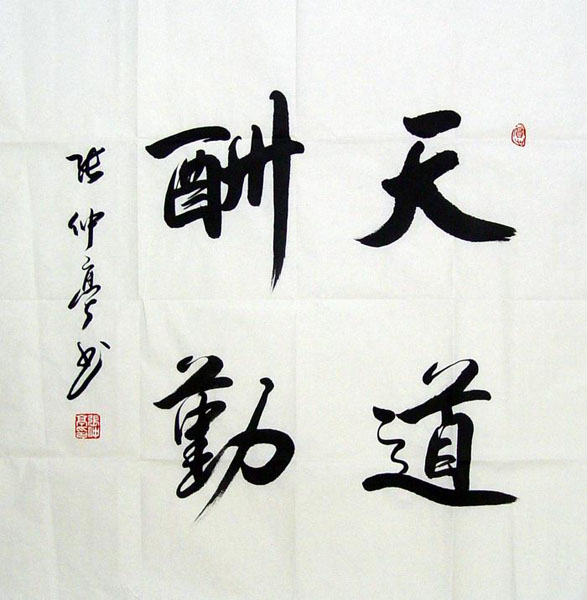 天道
酬勤
张仲亭书